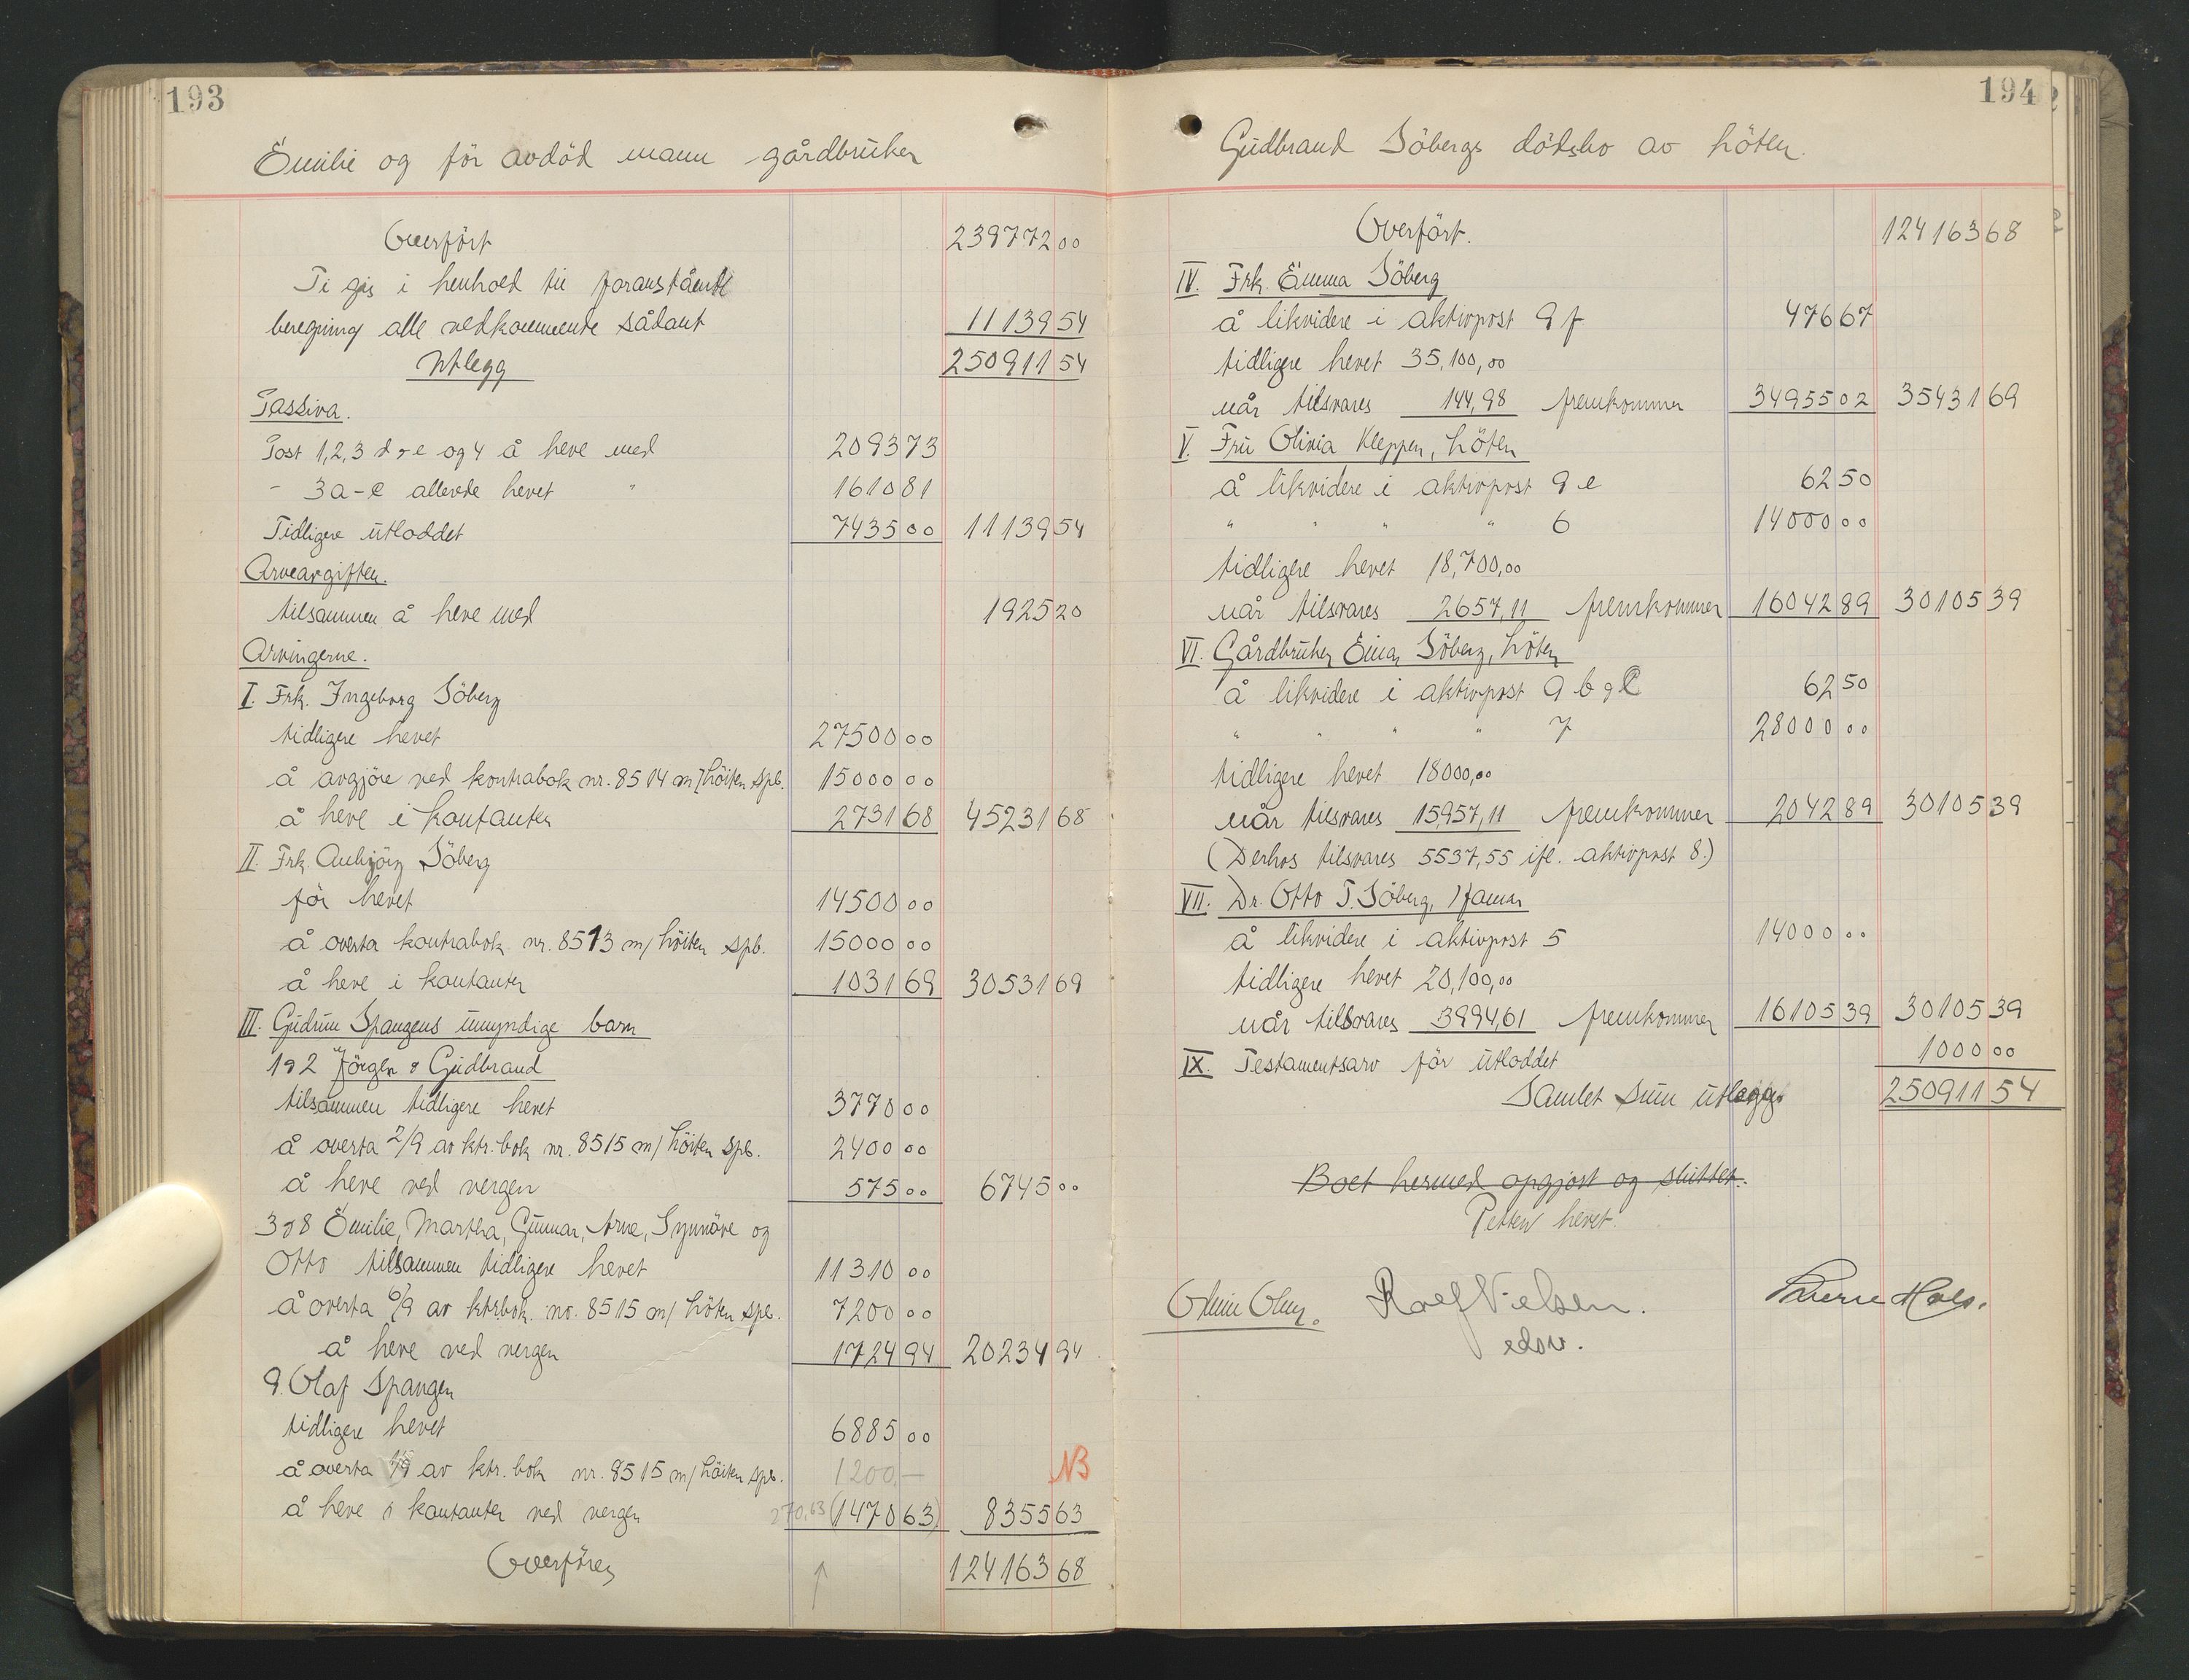 193
Emilie og för avdöd mann gårdbruker
Overfört 239772 00
Ti gis i henhold til foranstående
beregning alle vedkommende sådant 11139 54
Utlegg 250911 54
Passiva.
Post 1,2,3 d & e og 4 å heve med 2093 73
" 3a-c allerede hevet " 1610 81
Tidligere utloddet 7435 00 11139 54
Arveavgiften.
tilsammen å heve med 1925 20
Arvingerne.
I. Frk. Ingeborg Söberg
tidligere hevet 27500 00
å avgjöre ved kontrabok nr. 8514 m/ Höiten spb. 15000 00
å heve i kontanter 2731 68 45231 68
II. Frk. Anbjörg Söberg
för hevet 14500 00
å overta kontrabok nr. 8513 m/ Höiten spb. 15000 00
å heve i kontanter 1031 69 30531 69
III. Gudrun Spangens umyndige barn
1 & 2 Jörgen & Gudbrand
tilsammen tidligere hevet 3770 00
å overta 2/9 av ktr. bok nr. 8515 m/ Höiten spb. 2400 00
å heve ved vergen 575 00 6745 00
3 & 8 Emilie, Martha, Gunnar, Arne, Synnöve og
Otto tilsammen tidligere hevet 11310 00
å overta 6/9 av ktrbok. nr. 8515 m/ Höten spb. 7200 00
å heve ved vergen 1724 94 20234 94
9. Olaf Spangen
tidligere hevet 6885 00
å overta 1/9 av ktr. bok nr. 8515 m/ Höiten spb. 1200,— NB
å heve i kontanter ved vergen 270,63 (1470 63) 8355 63
Overföres 124163 68
194
Gudbrand Söbergs dödsbo av Höten.
Overfört. 124163 68
IV. Frk. Emma Söberg
å likvidere i aktivpost 9 f 476 67
tidligere hevet 35,100,00
når tilsvares 144,98 fremkommer 34955 02 35431 69
V. Fru Olivia Kleppen, Höten
å likvidere i aktivpost 9 e 62 50
" " " " 6 14000 00
tidligere hevet 18,700,00
når tilsvares 2657,11 fremkommer 16042 89 30105 39
VI. Gårdbruker Einar Söberg, Höten
å likvidere i aktivpost 9 b & c 62 50
" " " " 7 28000 00
tidligere hevet 18000,00
når tilsvares 15,957,11 fremkommer 2042 89 30105 39
(Derhos tilsvares 5537,55 ifl. aktivpost 8.)
VII. Dr. Otto T. Söberg, Hamar
å likvidere i aktivpost 5 14000 00
tidligere hevet 20,100,00
når tilsvares 3994,61 fremkommer 16105 39 30105 39
IX. Testamentsarv för utloddet 1000 00
Samlet sum utlegg. 250911 54
Boet hermed opgjort og sluttet.
Retten hevet.
Rolf Nielsen.
edsv.